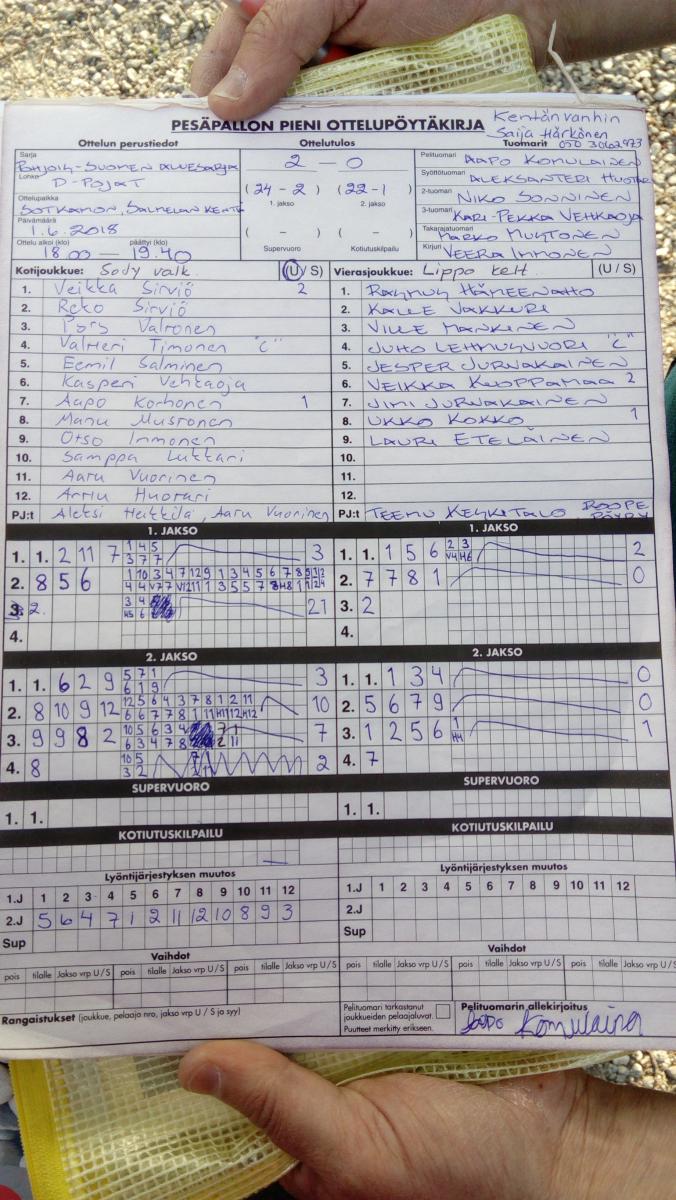 PESÄPALLON PIENI OTTELUPÖYTÄKIRJA
Kentänvanhin
Saija Härkönen
050 3062973
Ottelun perustiedot
Ottelutulos
Tuomarit
Sarja
POHJOIS-SUOMEN ALUESARJA
Lohko
D-POJAT
Ottelupaikka
SOTKAMON, SALMELAN KENTTÄ
Päivämäärä
1.6.2018
Ottelu alkoi (klo) päättyi (klo)
18.00 – 19.40
2 – 0
(24 – 2) (22 – 1)
1. jakso 2. jakso
( – ) ( – )
Supervuoro Kotiutuskilpailu
Pelituomari AAPO KOMULAINEN
Syöttötuomari ALEKSANTERI
2-tuomari NIKO SONNINEN
3-tuomari KARI-PEKKA VEHKAOJA
Takarajatuomari MARKO MUSTONEN
Kirjuri VEERA IMMONEN
Kotijoukkue: SoJy valk. (U / S)
1. Veikka Sirviö 2
2. Reko Sirviö
3. Valtonen
4. Valtteri Timonen "C"
5. Eemil Salminen
6. Kasperi Vehkaoja
7. Aapo Korhonen 1
8. Manu Mustonen
9. Otso Immonen
10. Samppa Luttari
11. Aaru Vuorinen
12. Huotari
PJ:t Aleksi Heikkilä, Aaru Vuorinen
Vierasjoukkue: Lippo kelt (U / S)
1. RASMUS HÄMEENAHO
2. KALLE VAKKURI
3. VILLE MANKINEN
4. JUHO LEHMUSVUORI "C"
5. JESPER JURVAKAINEN
6. VEIKKA KUOPPAMAA 2
7. JIMI JURVAKAINEN
8. UKKO KOKKO 1
9. LAURI ETELÄINEN
10.
11.
12.
PJ:t TEEMU KESKITALO ROOPE PÖYRY
1. JAKSO
1. 1. 2 11 7 1 4 5 3
3 7 7
2. 8 5 6 1 10 3 4 7 12 9 1 3 4 5 6 7 8
3. 2. 3 4 21
4.
1. JAKSO
1. 1. 1 5 6 2 3 2
V4 H6
2. 7 7 8 1 0
3. 2
4.
2. JAKSO
1. 1. 6 2 9 5 7 1 3
6 1 9
2. 8 10 9 12 12 5 6 4 3 7 8 1 2 11 10
6 6 7 7 8 1 11 H11 12 H12
3. 9 9 8 2 10 5 6 3 4 7 1 7
6 3 4 7 8 2 11
4. 8 10 5 2
3 2
2. JAKSO
1. 1. 1 3 4 0
2. 5 6 7 9 0
3. 1 2 5 6 1 1
H4
4. 7
SUPERVUORO
1. 1.
SUPERVUORO
1. 1.
KOTIUTUSKILPAILU
KOTIUTUSKILPAILU
Lyöntijärjestyksen muutos
1.J 1 2 3 4 5 6 7 8 9 10 11 12
2.J 5 6 4 7 1 2 11 12 10 8 9 3
Sup
Lyöntijärjestyksen muutos
1.J 1 2 3 4 5 6 7 8 9 10 11 12
2.J
Sup
Vaihdot
pois tilalle Jakso vrp U/S pois tilalle Jakso vrp U/S pois tilalle Jakso vrp U/S
Vaihdot
pois tilalle Jakso vrp U/S pois tilalle Jakso vrp U/S pois tilalle Jakso vrp U/S
Rangaistukset (joukkue, pelaaja nro, jakso vrp U / S ja syy)
Pelituomari tarkastanut
joukkueiden pelaajaluvat.
Puutteet merkitty erikseen.
Pelituomarin allekirjoitus
Aapo Komulainen